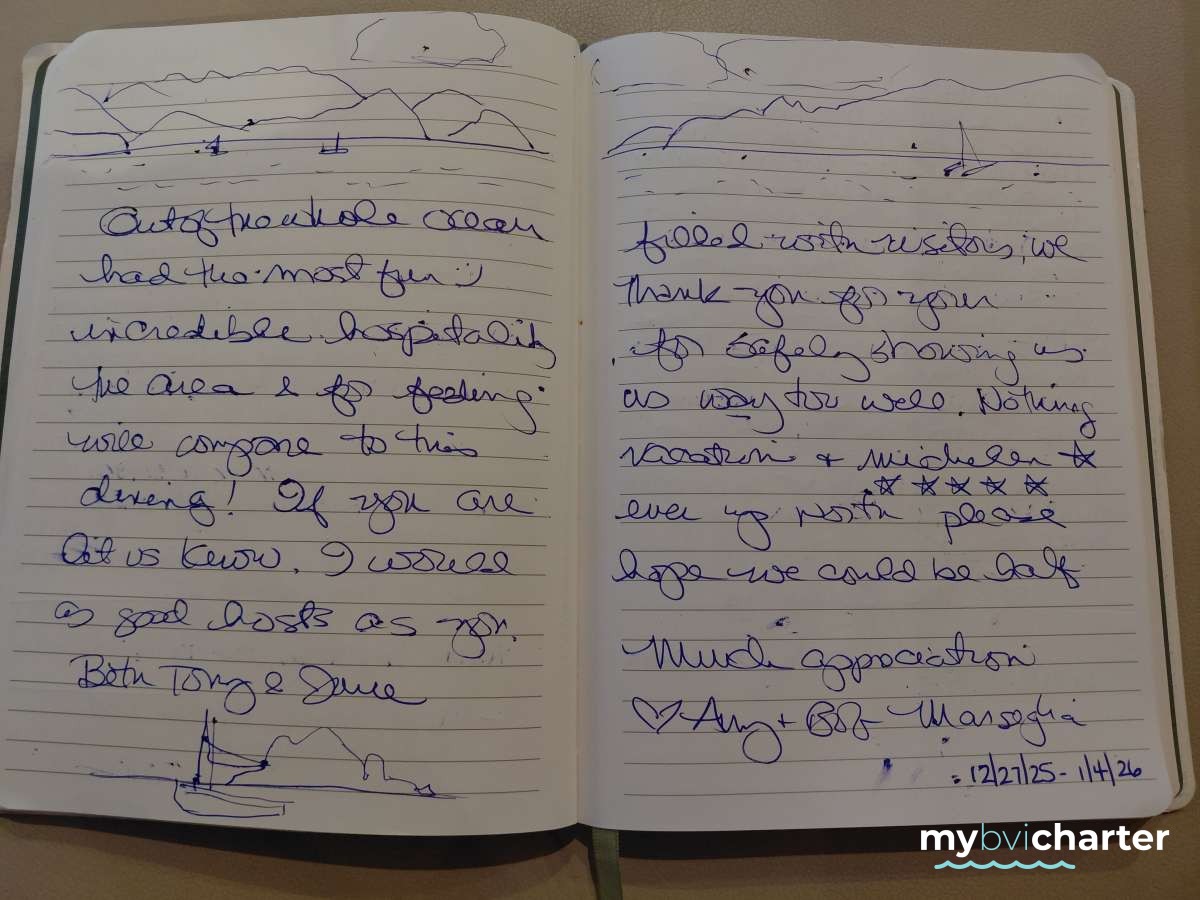 Out of the whole ocean
filled with visitors, we
had the most fun :)
Thank you for your
incredible hospitality
for safely showing us
the area & for feeding
us way too well. Nothing
will compare to this
vacation + michelen ☆
☆ ☆ ☆ ☆ ☆
dining! If you are
ever up north please
let us know. I would
hope we could be half
as good hosts as you.
Much appreciation
Both Tony &
♡ Amy + Bob Marseglia
12/27/25 - 1/4/26
mybvicharter